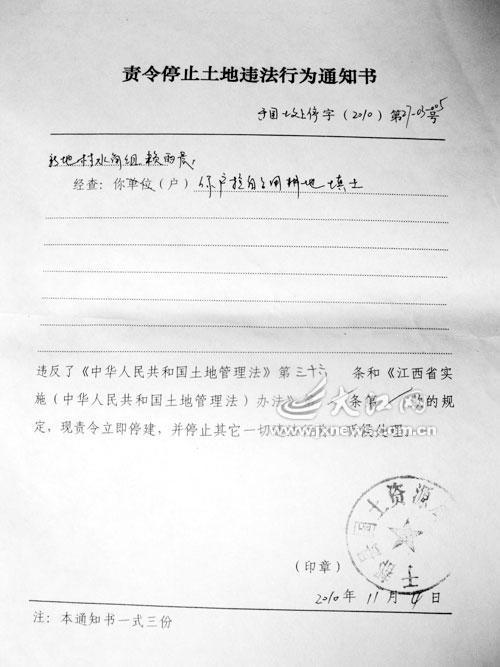 责令停止土地违法行为通知书
于国土改上停字(2010)第27-03-005号
新地村水阁组赖雨辰:
经查:你单位(户)你户擅自占用耕地填土
违反了《中华人民共和国土地管理法》第三十六条和《江西省实
施(中华人民共和国土地管理法)办法》第 条第 款的规
定,现责令立即停建,并停止其它一切 ,听候处理。
大江网
www.jxnews.com.cn
于都县国土资源局
(印章)
2010年11月4日
注:本通知书一式三份